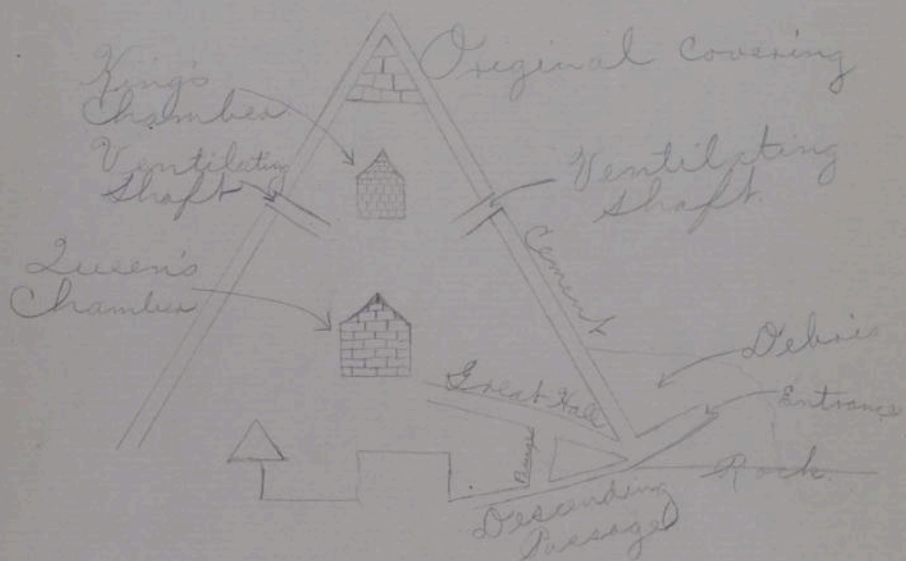 Original Covering
King's
Chamber
Ventilating
Shaft
Ventilating
Shaft
Cement
Queen's
Chamber
Debris
Great Hall
Entrance
Rock
Descending
Passage